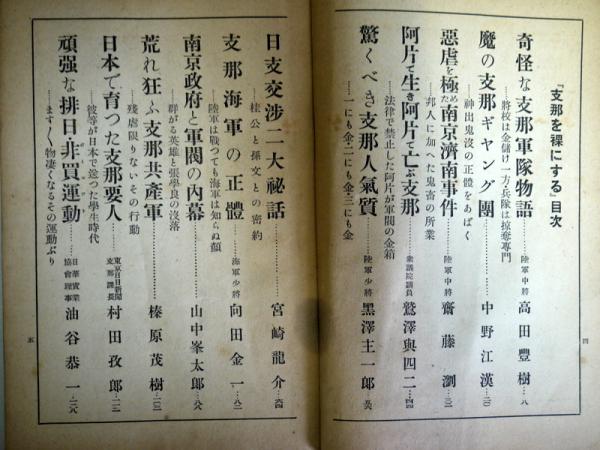 『支那を裸にする』目次
奇怪な支那軍隊物語 陸軍中將 高田豐樹…八
……將校は金儲け一方・兵隊は掠奪專門
魔の支那ギヤング團 中野江漢…三〇
……神出鬼沒の正體をあばく
惡虐を極めた南京濟南事件 陸軍中將 齋藤瀏…三三
……邦人に加へた鬼畜の所業
阿片で生き阿片で亡ぶ支那 衆議院議員 鷲澤與四二…四四
……法律で禁止した阿片が軍閥の金箱
驚くべき支那人氣質 陸軍少將 黑澤主一郎…五六
……一にも金・二にも金・三にも金
四
日支交涉二大祕話 宮崎龍介…六四
……桂公と孫文との密約
支那海軍の正體 海軍少將 向田金一…八二
……陸軍は戰つても海軍は知らぬ顏
南京政府と軍閥の內幕 山中峯太郎…八八
……群がる英雄と張學良の沒落
荒れ狂ふ支那共產軍 榛原茂樹…一〇三
……殘虐限りないその行動
日本で育つた支那要人 東京日日新聞支那課長 村田孜郎…一一三
……彼等が日本で送つた學生時代
頑强な排日非買運動 日華實業協會理事 油谷恭一…一二八
……ます〱物凄くなるその運動ぶり
五